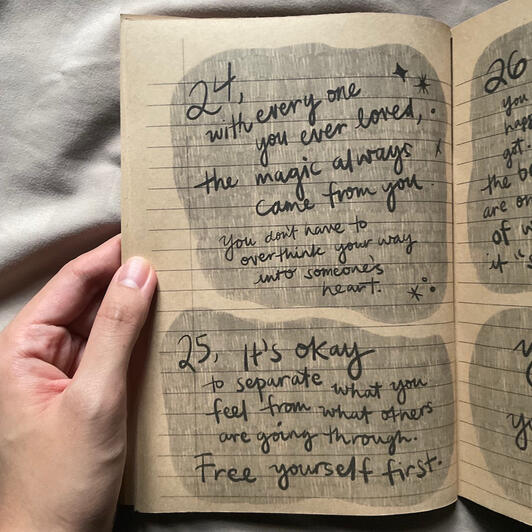 24,
with every one
you ever loved,
the magic always
came from you.
you don't have to
overthink your way
into someone's
heart.
25, It's okay
to separate what you
feel from what others
are going through.
Free yourself first.
26
you
get.
the b
are on
of w
it "s
y
yo